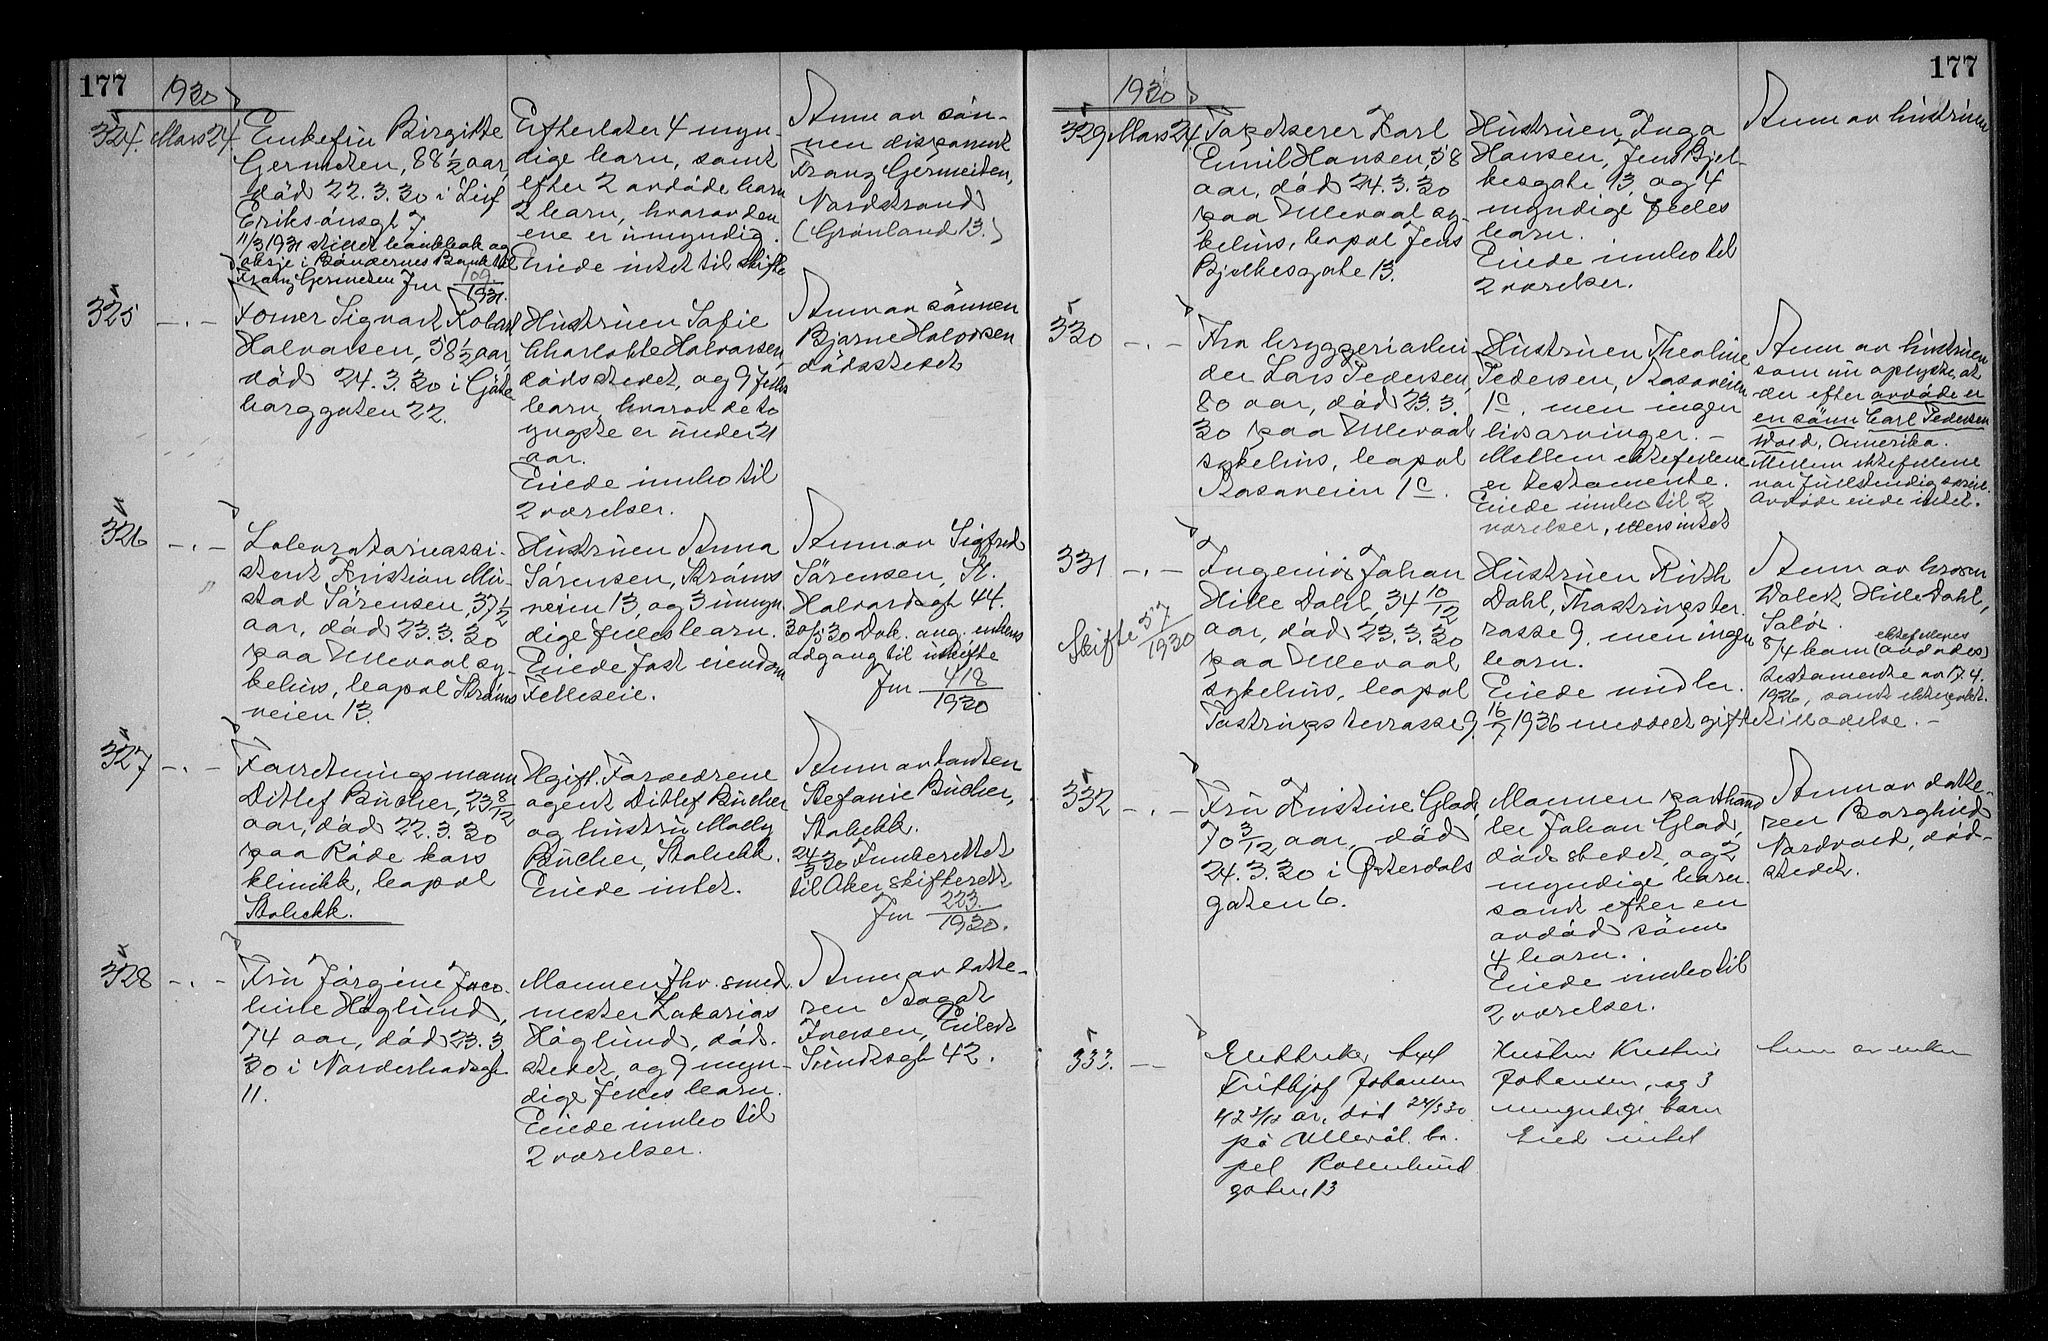 177
1930
324. Mars 24. Enkefru Birgitte
Germeten, 88 1/2 aar,
död 22.3.30 i Leif
Erikssönsgt 7.
11/3 1931 stillet bankbok og
aksje i Böndernes Bank til
Franz Germeten Jnr 109/1931.
Efterlater 4 myn-
dige barn, samt
efter 2 avdöde barn
2 barn, hvorav den
ene er umyndig.
Eiede intet til skifte
Anm av sön-
nen disponent
Franz Germeten,
Nordstrand
(Grönland 13.)
325 -"- Former Sigvart Robert
Halvorsen, 58 1/2 aar,
död 24.3.30 i Göte
borggaten 22.
Hustruen Sofie
Charlotte Halvorsen,
dödsstedet, og 9 felles
barn, hvorav de to
yngste er under 21
aar.
Eiede innbo til
2 værelser.
Anm av sönnen
Bjarne Halvorsen
dödsstedet
326 -"- Laboratorieassi-
stent Kristian Mu-
stad Sörensen, 37 1/2
aar, död 23.3.30
paa Ullevaal sy-
kehus, bopæl Ströms
veien 13.
Hustruen Anna
Sörensen, Ströms
veien 13, og 3 umyn
dige felles barn.
Eiede fast eiendom
Felleseie.
Anm av Sigfred
Sörensen, St.
Halvardsgt 44.
30/5 30 Dok. ang. enkens
adgang til uskifte
Jnr 418/1930
327 -"- Forretningsmann
Ditlef Bücher, 23 8/12
aar, död 22.3.30
paa Röde kors
klinikk, bopæl
Stabekk.
Ugift. Forældrene
agent Ditlef Bücher
og hustru Molly
Bücher, Stabekk.
Eiede intet.
Anm av tanten
Stefanie Bücher,
Stabekk.
24/3 30 Innberettet
til Aker skifterett
Jnr 223/1930.
328 -"- Fru Jörgine Jaco-
bine Höglund,
74 aar, död 23.3
30 i Norderhovsgt
11.
Mannen fhv. smed
mester Zakarias
Höglund, död-
stedet, og 9 myn-
dige felles barn.
Eiede innbo til
2 værelser.
Anm av datte-
ren Aagot
Iversen, Eilert
Sundtsgt 42.
177
1930
329 Mars 24. Tapetserer Karl
Emil Hansen 58
aar, död 24.3.30
paa Ullevaal sy-
kehus, bopæl Jens
Bjelkesgate 13.
Hustruen Inga
Hansen, Jens Bjel-
kesgate 13, og 4
myndige felles
barn.
Eiede innbo til
2 værelser.
Anm av hustruen
330 -"- Fhv bryggeriarbei
der Lars Pedersen,
80 aar, död 23.3.
30 paa Ullevaal
sykehus, bopæl
Rosoveien 1c.
Hustruen Theoline
Pedersen,
1c, men ingen
livsarvinger. -
Mellem ektefellene
er testamente.
Eiede innbo til 2
værelser, ellers intet
Anm av hustruen
som nu oplyste, at
der efter avdöde er
en sönn Carl Pedersen
Wold, Amerika.
Mellem ektefellene
var fullstendig særeie.
Avdöde eiede intet.
331 -"- Ingeniör Johan
Hille Dahl, 34 10/12
aar, död 23.3.30
paa Ullevaal
sykehus, bopæl
Tostrups terrasse 9. 16/7 1936 meddelt giftetilladelse. -
Skifte 37/1930
Hustruen Ruth
Dahl, Thostrups ter-
rasse 9, men ingen
barn.
Eiede midler.
Anm av broren
Hille Dahl,
8/4 kom (avdödes) ektefellenes
testamente av 17.4.
1926, samt ektepakt.
332 -"- Fru Kristine Glad,
70 3/12 aar, död
24.3.30 i Østerdals
gaten 6.
Mannen parthand
ler Johan Glad,
dödsstedet, og 2
myndige barn
samt efter en
avdöd sönn
4 barn.
Eiede innbo til
2 værelser.
Anm av datte-
ren Borghild
Nordvold, död-
stedet.
333. -"- Elektriker
Frithjof Johansen
42 2/12 år, död 24/3 30
på Ullevål. bo-
pel Rosenlund
gaten 13
Hustru Kristine
Johansen, og 3
umyndige barn
Eied intet
Anm av enken